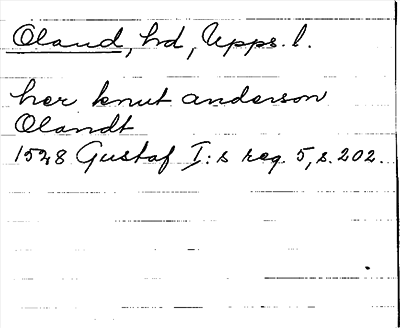 Oland, hd, Upps. l.
her knut anderson
Olandt
1528 Gustaf I:s reg. 5, s. 202.